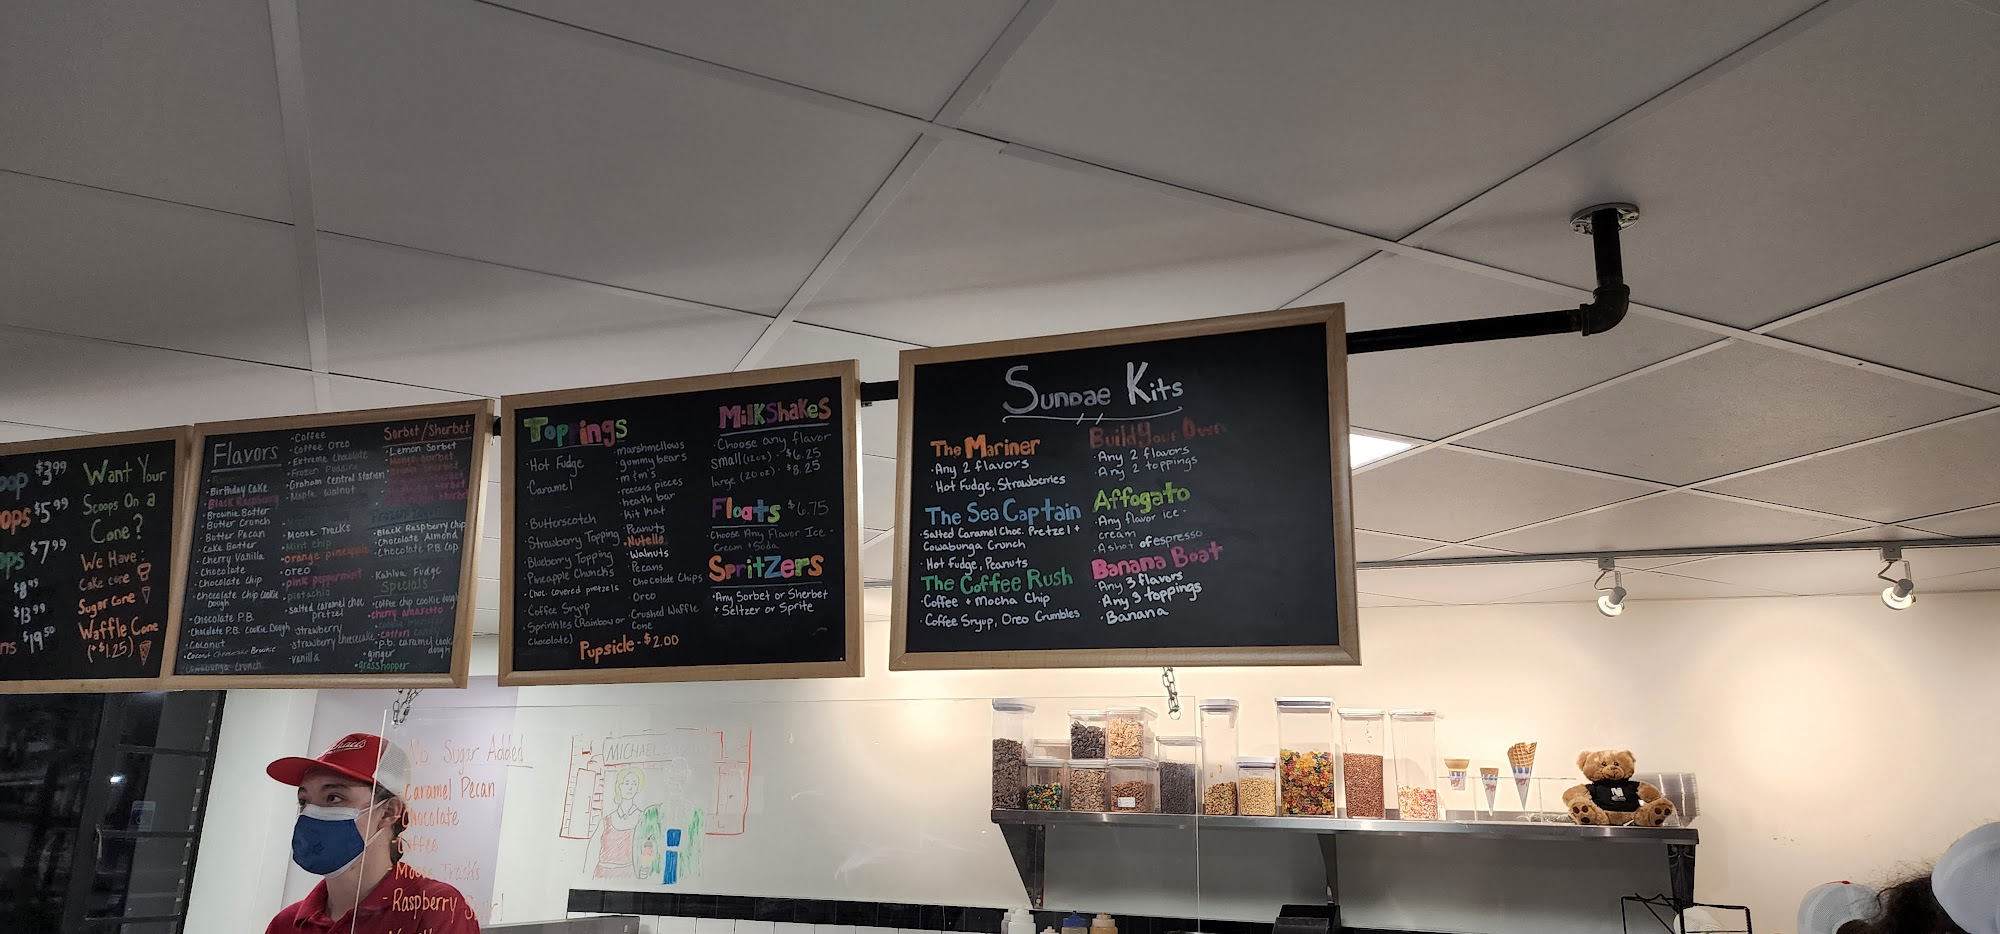 $3.99
$5.99
$7.99
$8.99
$13.99
$19.50
Want Your
Scoops On a
Cone?
We Have:
Cake cone
Sugar Cone
Waffle Cone
(+$1.25)
Flavors
• Birthday Cake
• Black Raspberry
• Brownie Batter
• Butter Crunch
• Butter Pecan
• Cake Batter
• Cherry Vanilla
• Chocolate
• Chocolate Chip
• Chocolate Chip Cookie
Dough
• Chocolate P.B.
• Chocolate P.B. Cookie Dough
• Coconut
Crunch
• Coffee
• Coffee Oreo
• Extreme Chocolate
• Frozen Pudding
• Graham Central Station
• Maple Walnut
• Moose Tracks
• Mint chip
• orange pineapple
• OREO
• pink peppermint
• pistachio
• salted caramel choc
pretzel
• strawberry
• strawberry cheesecake
• vanilla
Sorbet/Sherbet
• Lemon Sorbet
• Black Raspberry chip
• Chocolate Almond
• Chocolate P.B. Cup
• Kahlua Fudge
Specials
• coffee chip cookie dough
• cherry amaretto
• cotton candy
• p.b. caramel cookie
dough
• ginger
• grasshopper
Toppings
• Hot Fudge
• Caramel
• Butterscotch
• Strawberry Topping
• Blueberry Topping
• Pineapple Chunks
• Choc. covered pretzels
• Coffee Sryup
• Sprinkles (Rainbow or
Chocolate)
• marshmellows
• gummy bears
• m & m's
• reeces pieces
• heath bar
• kit kat
• Peanuts
• Nutella
• Walnuts
• Pecans
• Chocolate Chips
• Oreo
• Crushed Waffle
Cone
Pupsicle - $2.00
Milkshakes
• Choose any flavor
small (12oz) - $6.25
large (20 oz) - $8.25
Floats $6.75
• Choose Any Flavor Ice
Cream + Soda
Spritzers
• Any Sorbet or Sherbet
+ Seltzer or Sprite
Sundae Kits
The Mariner
• Any 2 flavors
• Hot Fudge, Strawberries
The Sea Captain
• Salted Caramel Choc. Pretzel +
Cowabunga Crunch
• Hot fudge, Peanuts
The Coffee Rush
• Coffee + Mocha Chip
• Coffee Sryup, Oreo Crumbles
Build Your Own
• Any 2 flavors
• Any 2 toppings
Affogato
• Any flavor ice-
cream
• A shot of espresso
Banana Boat
• Any 3 flavors
• Any 3 toppings
• Banana
No Sugar Added
- Caramel Pecan
- Chocolate
- Coffee
- Moose Tracks
- Raspberry
MICHAEL